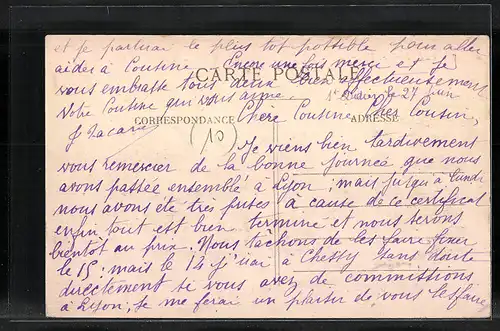 et je partirai le plus tot possible pour aller
aider à Cousine. Encore une fois merci et je
CARTE POSTALE
vous embrasse tous deux bien affectueusement
Votre Cousine qui vous aime.
le 27 Juin
Chère Cousine, Cher Cousin,
CORRESPONDANCE
ADRESSE
J Lacarie
(10)
Je viens bien tardivement
vous remercier de la bonne journeé que nous
avons passée ensemble à Lyon; mais jusqu'à lundi
nous avons été très prises à cause de ce certificat
enfin tout est bien terminé et nous serons
bientôt au prix. Nous tâchons de les faire fixer
le 15; mais le 14 j'irai à Chessy sans doute
directement si vous avez de commissions
à Lyon, je me ferai un plaisir de vous les faire